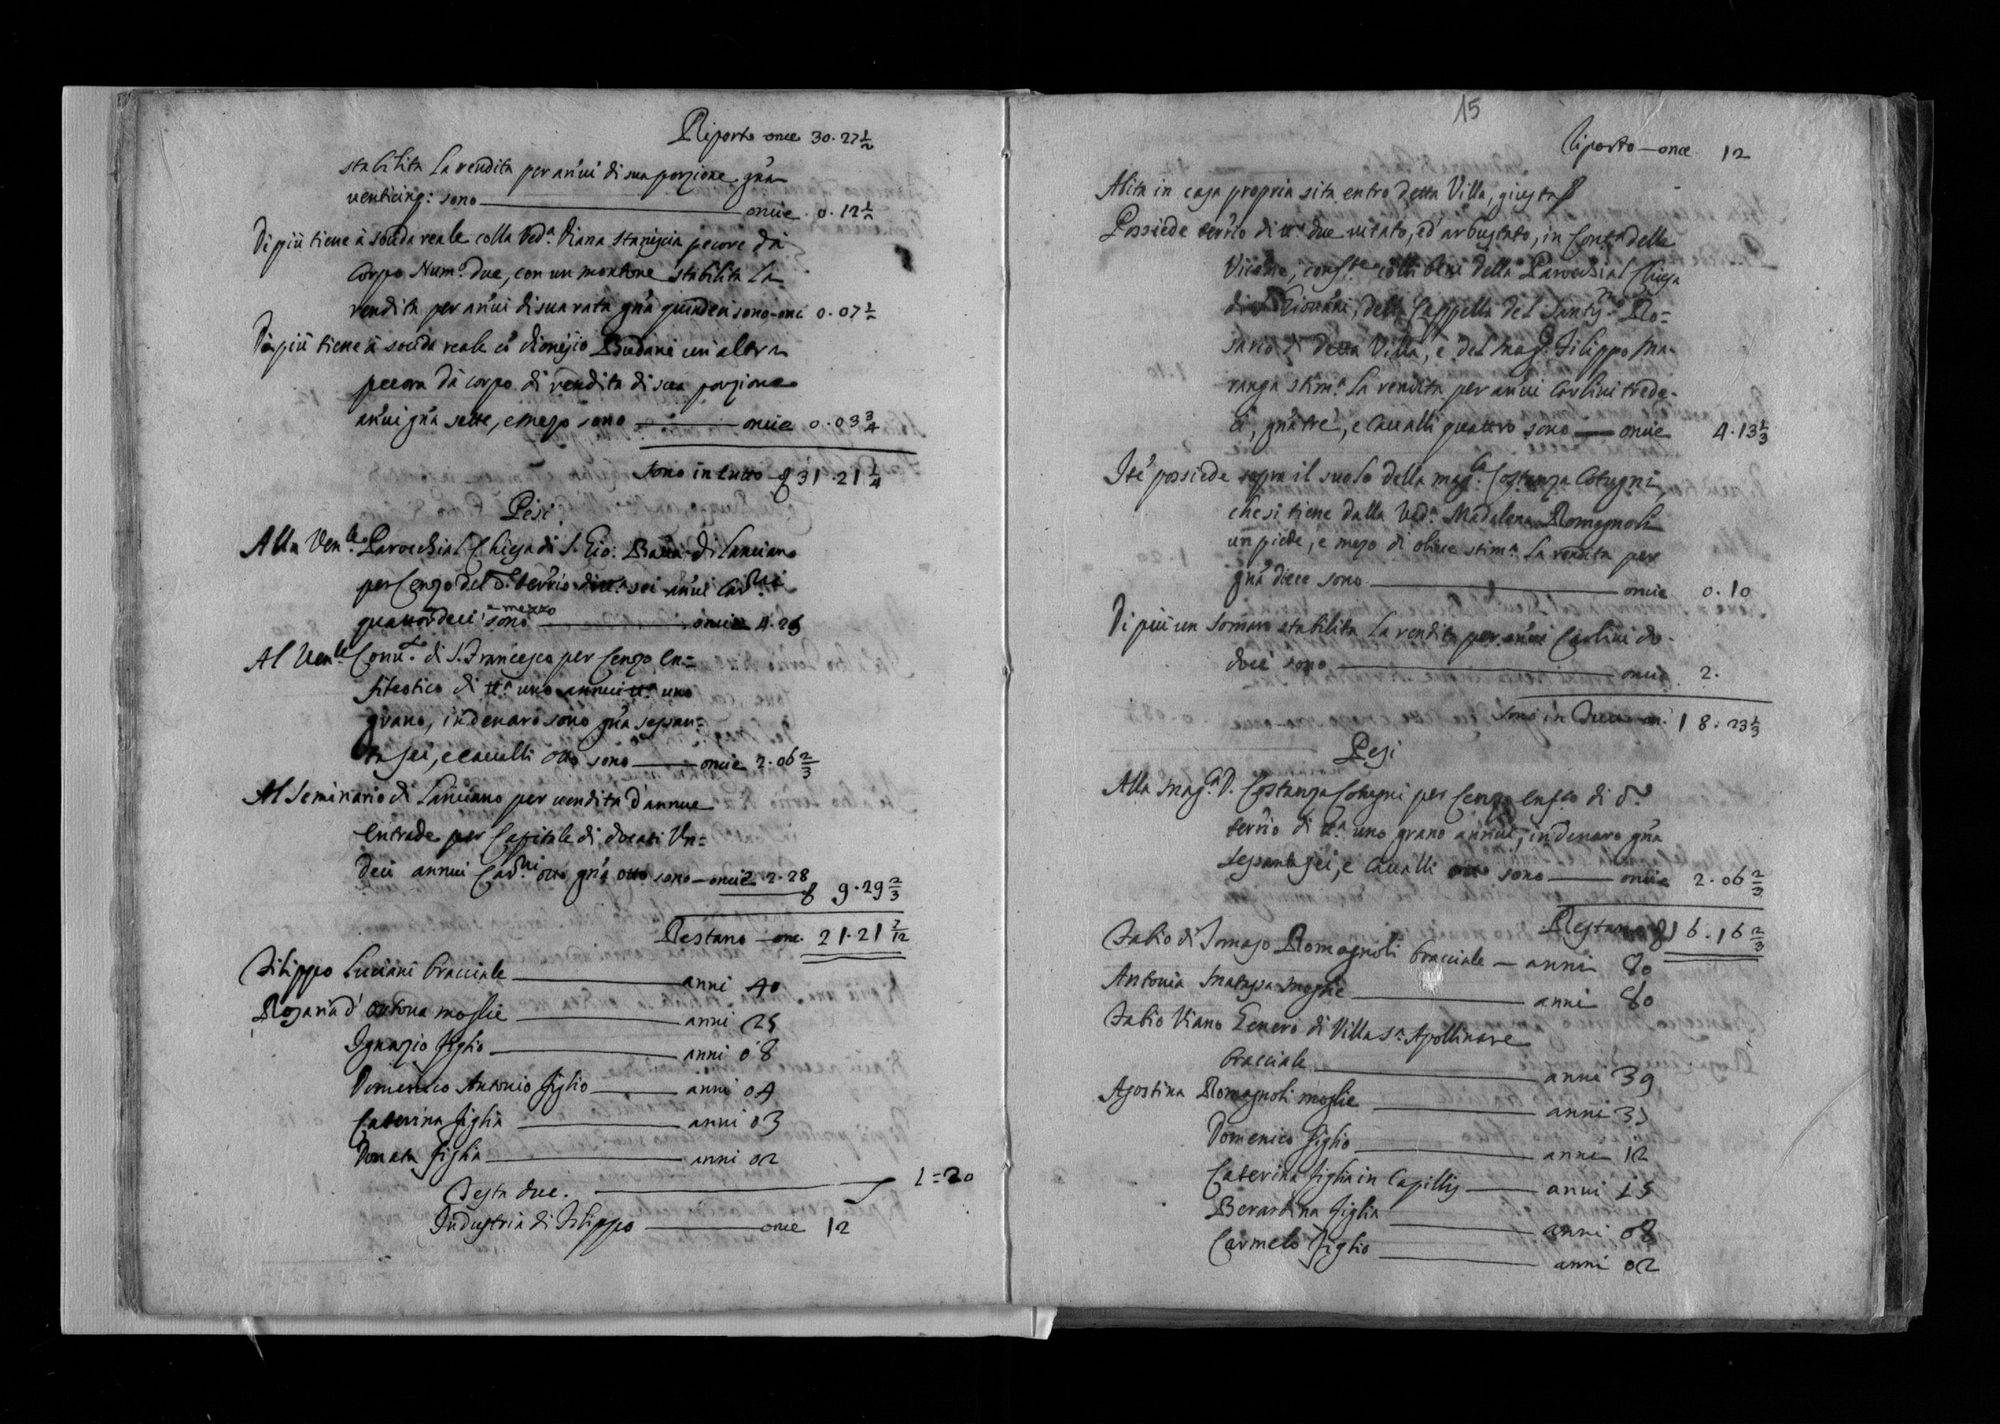 Riporto once 30.27½
stabilita la rendita per an̄ui di sua porzione gr̄a
venticinq: sono once 0.12½
Di più tiene à soccida reale colla Ved.ª Diana Staniscia pecore dà
corpo Num.º due, con un montone stabilita la
rendita per an̄ui di sua rata gr̄a quindeci sono onc 0.07½
Di più tiene à soccida reale cō Dionisio Budani un'altra
pecora dà corpo di rendita di sua porzione
an̄ui gr̄a sette, e mezo sono oncie 0.03¾
sono in tutto 31.21¼
Pesi
Alla Ven.le Parocchial Chiesa di S. Gio: Batta di Lanciano
per Cenzo del d.º terr̄io di tt.ª sei an̄ui Car.ni
quattordeci e mezzo sono oncie 4.25
Al Ven.le Conv.to di S. Francesco per Cenzo en=
fiteotico di tt.ª uno annui tt.ª uno
grano, in denaro sono gr̄a sessan=
ta sei, e cavalli otto sono oncie 2.06⅔
Al Seminario di Lanciano per vendita d'annue
entrade per Capitale di docati Un=
deci annui Car.ni otto gr̄a otto sono oncie 2.28
9.29⅔
Restano onc. 21.21 7/12
Filippo Luciani bracciale anni 40
Rosaria d'Ortona moglie anni 25
Ignazio figlio anni 08
Domenico Antonio figlio anni 04
Caterina figlia anni 03
Donata figlia anni 02
Testa due. 1=20
Industria di Filippo once 12
15
Riporto once 12
Abita in casa propria sita entro detta Villa, giusta
Possiede terr̄io di tt.ª due vitato, ed arbustato, in Cont.ª delle
Vicene, conf.te colli beni della Parocchial Chiesa
di S. Giovāni, della Cappella del Santis.mo Ro=
sario di detta Villa, e del mag.co Filippo Ma-
ranga stim.ª la rendita per an̄ui Carlini trede-
ci, gr̄a tre, e cavalli quattro sono oncie 4.13⅓
Itē possiede sopra il suolo della mag.ca Costanza Cotugni,
che si tiene dalla Ved.ª Madalena Romagnoli
un piede, e mezo di olive stim.ª la rendita per
gr̄a diece sono oncie 0.10
Di più un somaro stabilita la rendita per an̄ui Carlini do-
deci sono oncie 2.
sono in Tutto on. 18.23⅓
Pesi
Alla Mag.ca D. Costanza Cotugni per Cenzo enf.co di d.º
terr̄io di tt.ª uno grano annui, in denaro gr̄a
sessanta sei, e cavalli otto sono oncie 2.06⅔
Restano 16.16⅔
Fabio di Tomaso Romagnoli bracciale anni 80
Antonia moglie anni 80
Fabio Viano Genero di Villa S.ª Apollinare
bracciale anni 39
Agostina Romagnoli moglie anni 35
Domenico figlio anni 12
Caterina figlia in Capillis anni 15
Berardina figlia anni 08
Carmelo figlio anni 02